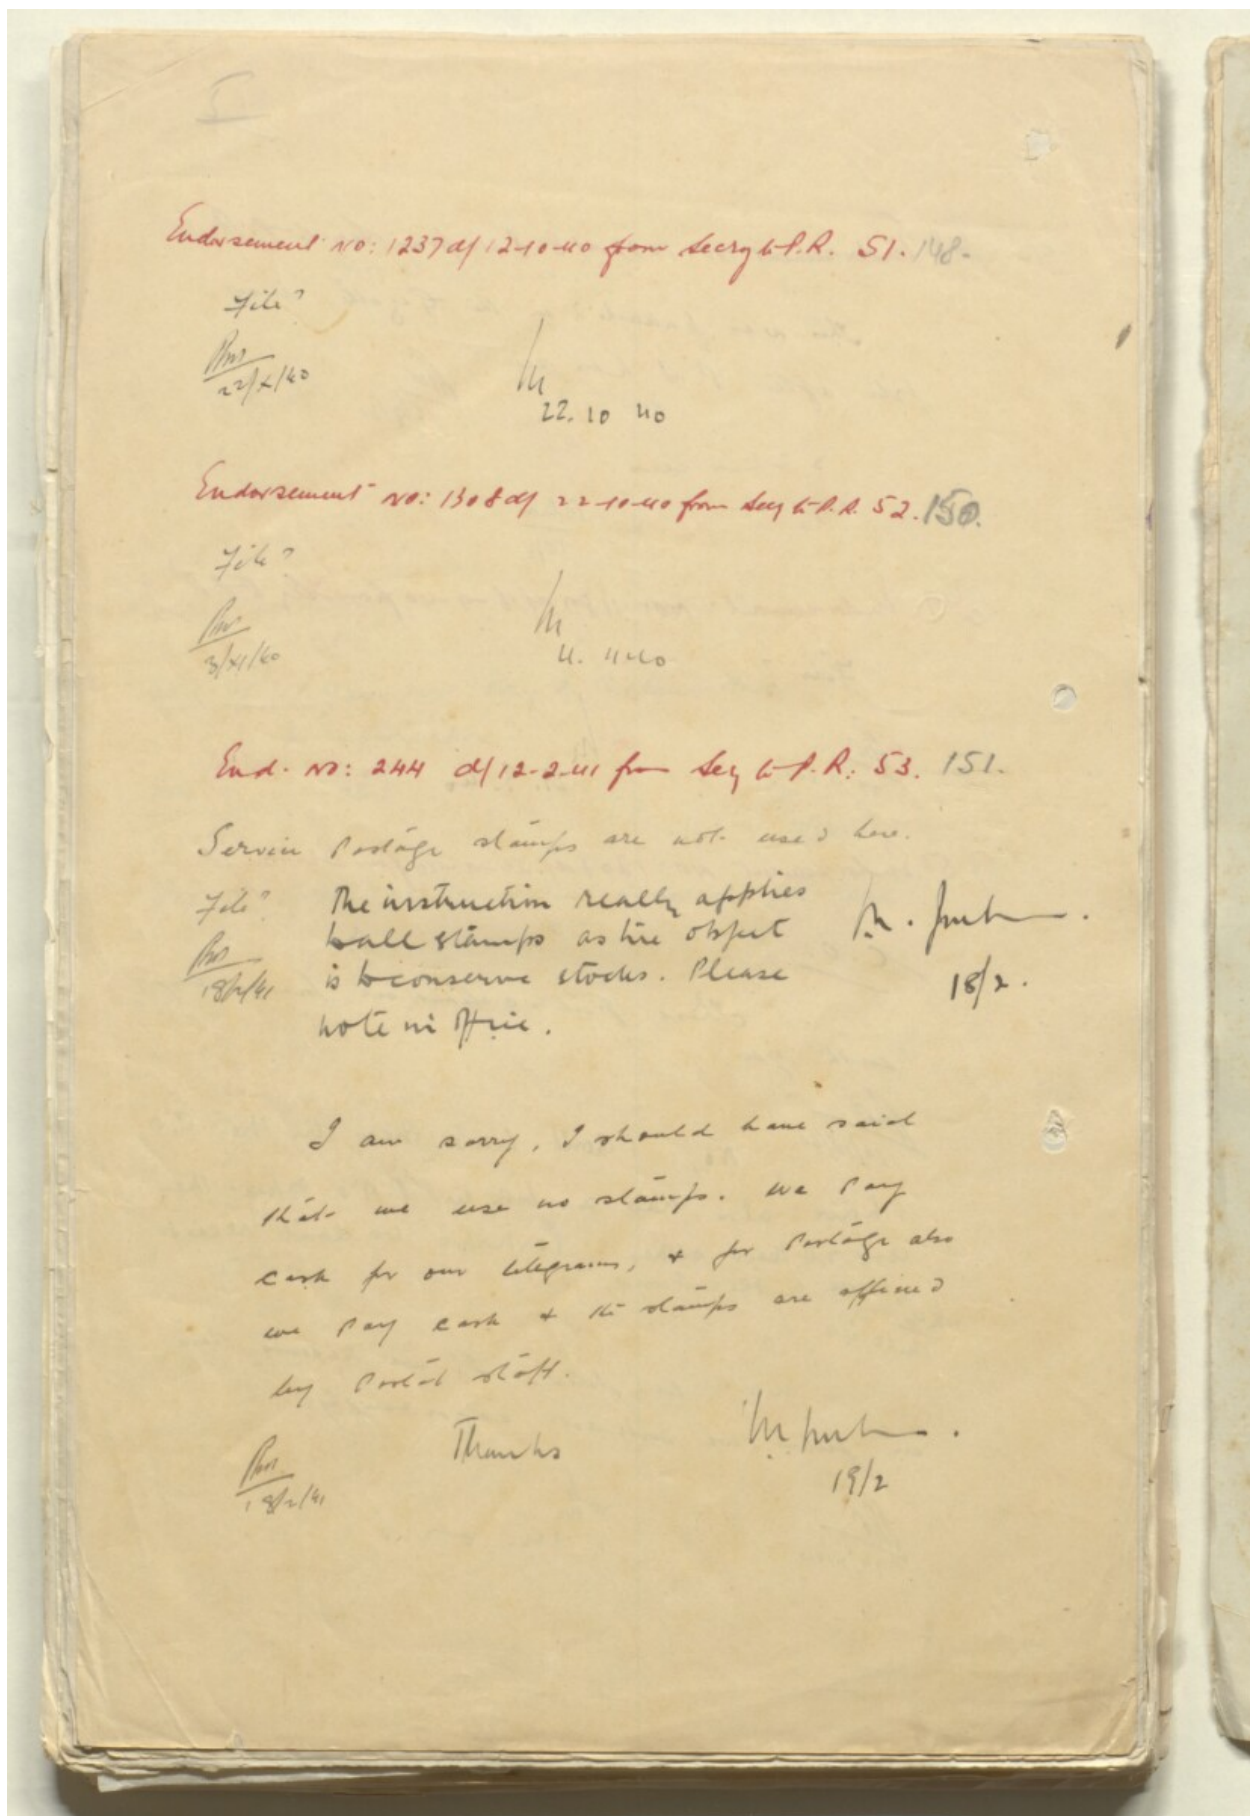 Endorsement No: 1237 d/ 12-10-40 from Secry to P.R. 51. 148.
File?
22/X/40
22. 10 40
Endorsement No: 1308 d/ 22-10-40 from Secy to P.R. 52. 150.
File?
3/XI/40
4. 11 40
End. No: 244 d/ 12-2-41 from Secy to P.R. 53. 151.
Service Postage stamps are not used here.
File?
18/2/41
The instruction really applies
to all stamps as the object
is to conserve stocks. Please
note in office.
18/2.
I am sorry, I should have said
that we use no stamps. We pay
cash for our telegrams, & for Postage also
we pay cash & the stamps are affixed
by Postal staff.
18/2/41
Thanks
19/2